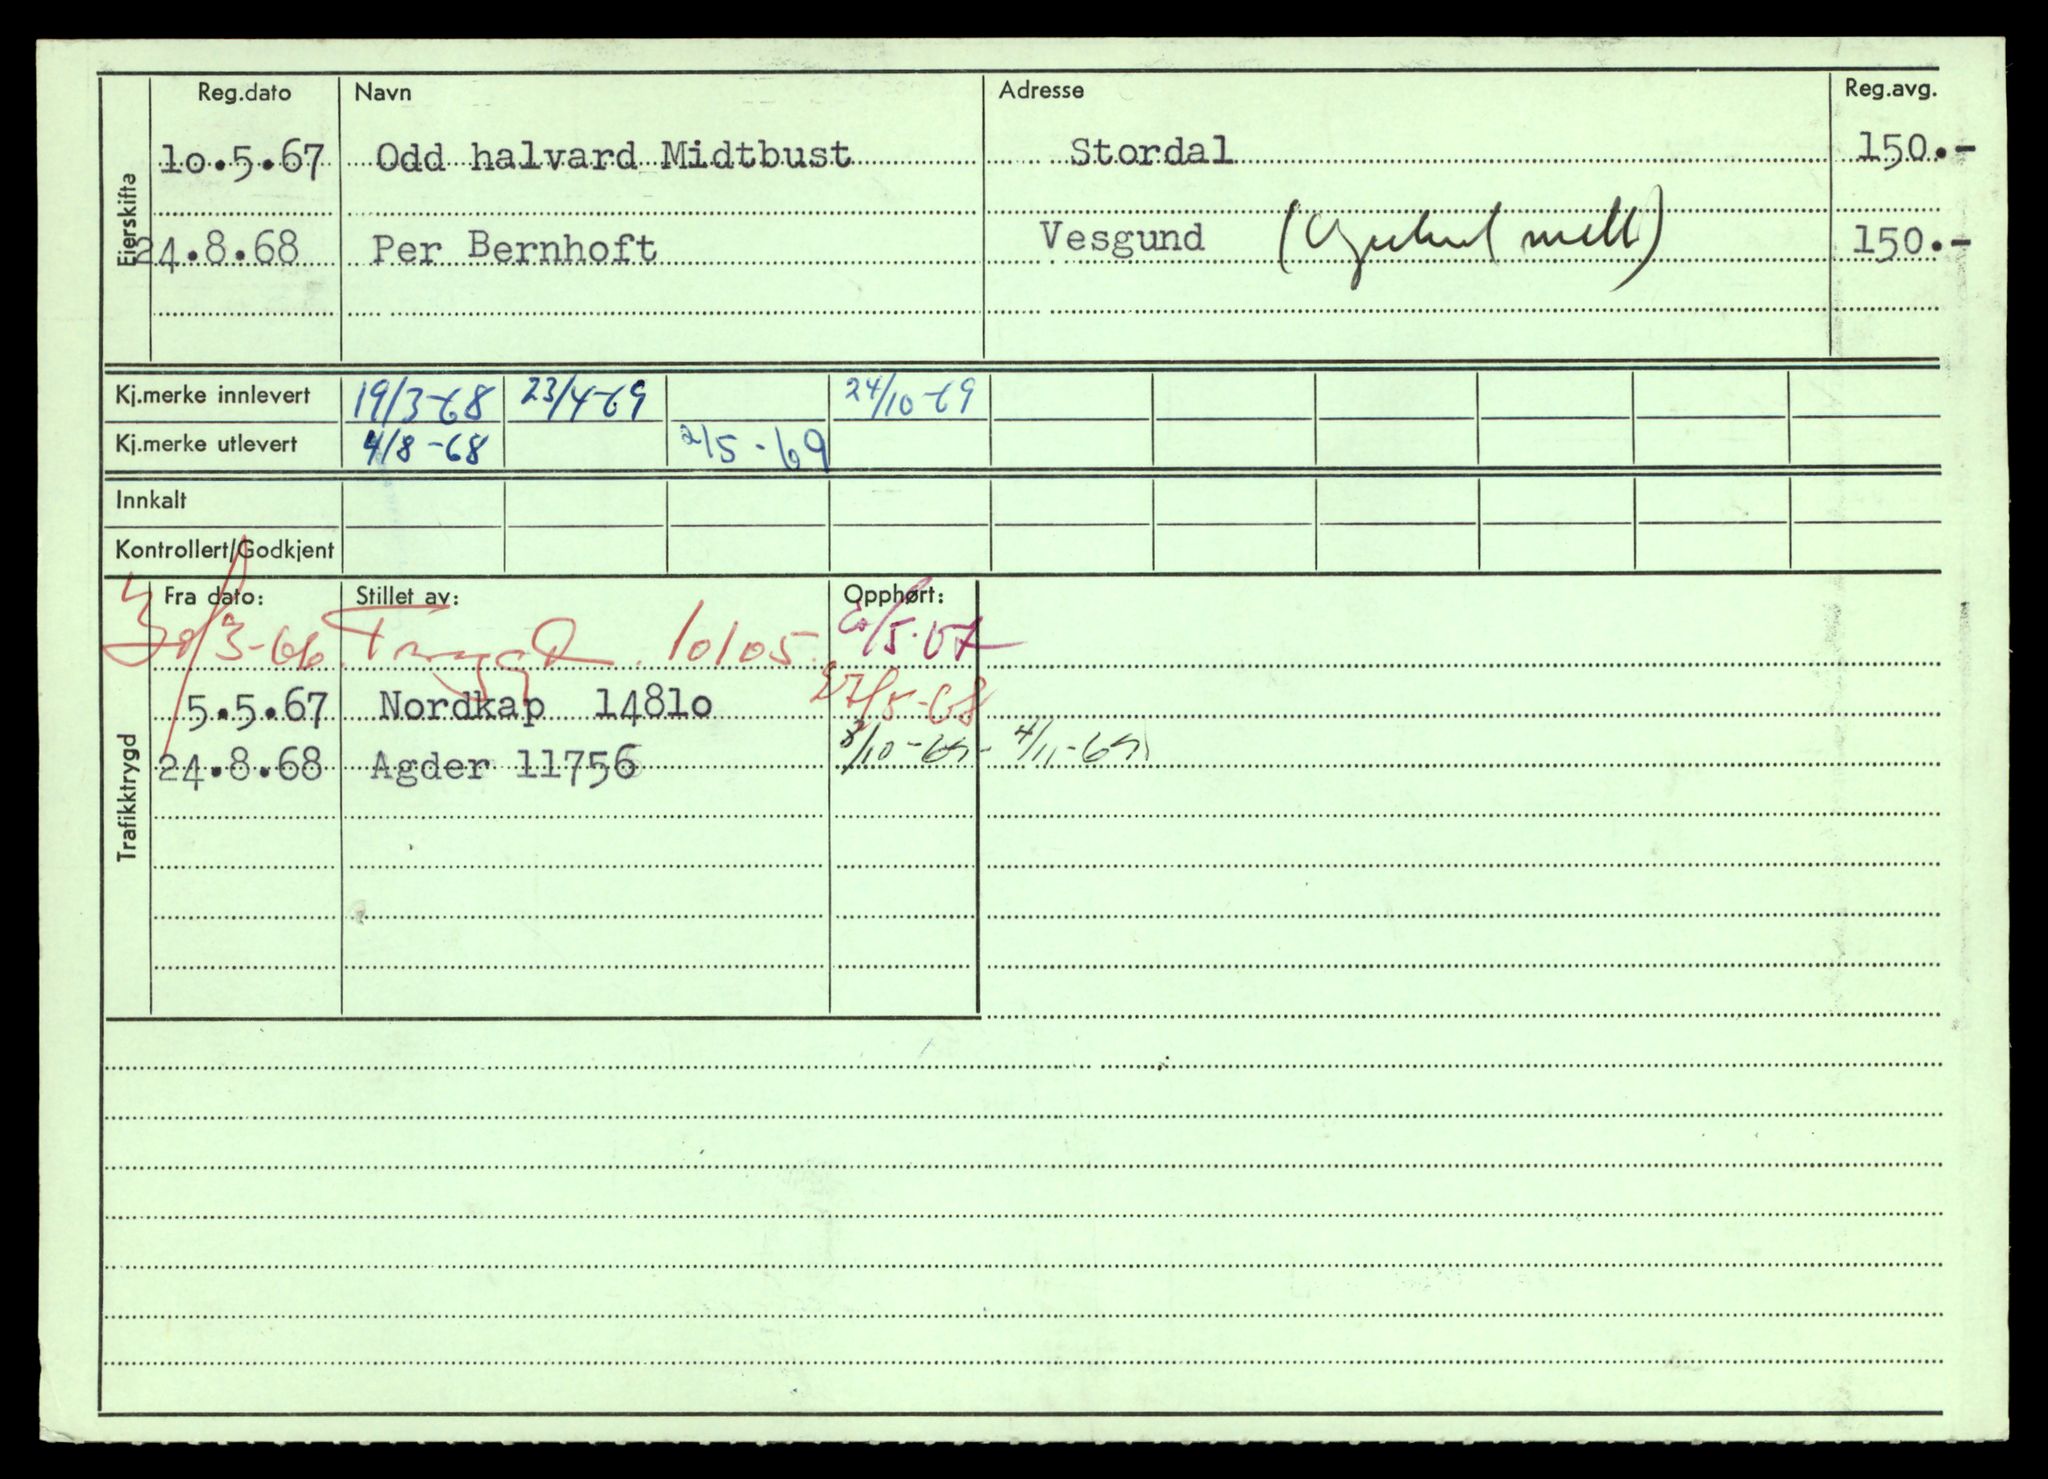 Reg.dato Navn Adresse Reg.avg.
Eierskifte
lo.5.67 Odd halvard Midtbust Stordal 150.-
24.8.68 Per Bernhoft Vesgund 150.-
Kj.merke innlevert 19/3-68 23/4-69 24/10-69
Kj.merke utlevert 4/8-68 2/5-69
Innkalt
Kontrollert/Godkjent
Trafikktrygd
Fra dato: Stillet av: Opphørt:
/3-66 10105
5.5.67 Nordkap 1481o 27/5-68
24.8.68 Agder 11756 /10-69- 4/11-69